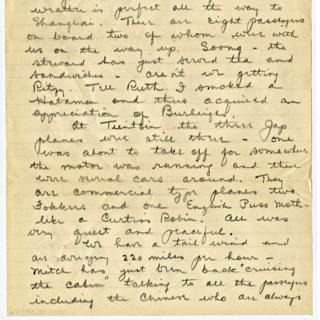 weather is perfect all the way to
Shanghai. There are Eight passengers
on board two of whom were with
us on the way up. Soong - the
steward has just served tea and
sandwiches - aren't we getting
Ritzy. Tell Ruth I smoked a
Hatamen and thus acquired an
appreciation of Burleighs.
At Tientsin the three Jap
planes were still there - one
was about to take off for somewhere
the motor was running and there
were several cars around. They
are commercial type planes two
Fokkers and one English Puss Moth -
like a Curtiss Robin. All was
very quiet and peaceful.
We have a tail wind and
are averaging 220 miles per hour -
Mitch has just been back "cruising
the cabin" talking to all the passengers
including the Chinese who are always